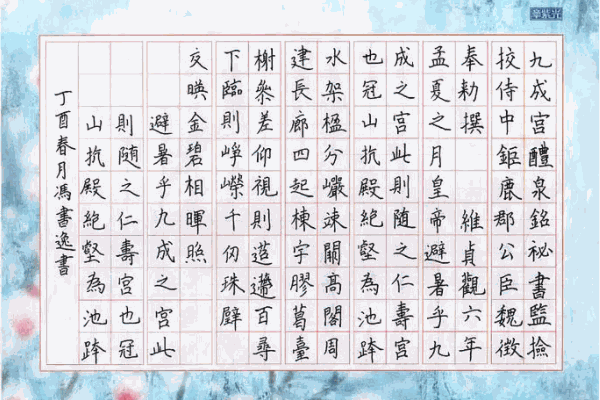 九成宮醴泉銘祕書監撿
挍侍中鉅鹿郡公臣魏徵
奉勑撰 維貞觀六年
孟夏之月皇帝避暑乎九
成之宮此則随之仁壽宮
也冠山抗殿絕壑為池跨
水架楹分巖竦闕高閣周
建長廊四起棟宇膠葛臺
榭叅差仰視則迢遰百尋
下臨則崢嶸千仞珠壁
交暎金碧相暉照
避暑乎九成之宮此
則随之仁壽宮也冠
山抗殿絕壑為池跨
丁酉春月馮書逸書